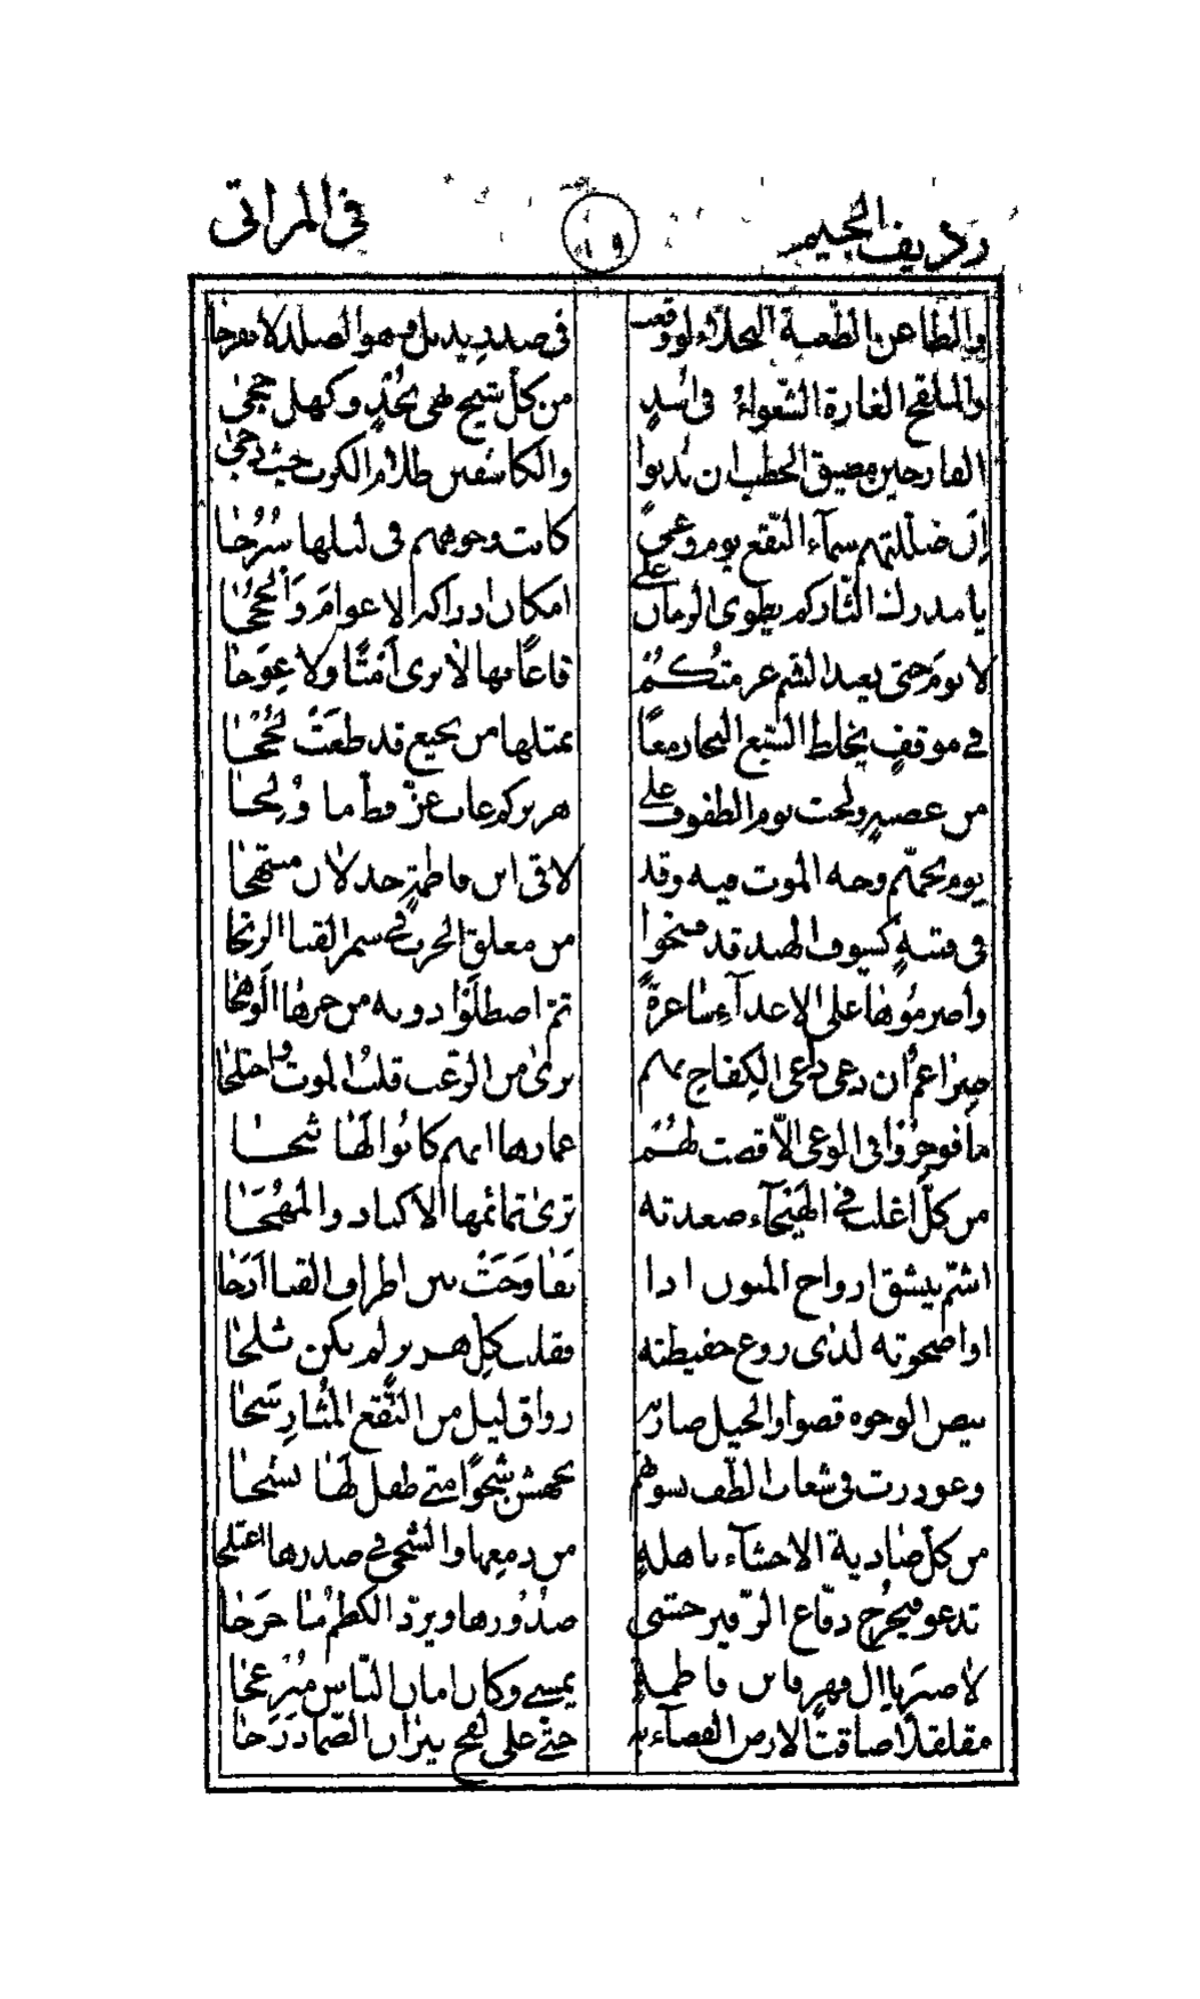 رديف الجيم ١٩ في المراثي
والطاعن الطعنة النجلاء لو وقعت في صدر يذبل وهو الصلد لانفرجا
والملقح الغارة الشعواء في أسدٍ من كل شيح نهى وكهل حجى
الفارجين مضيق الخطب ان ندبوا والكاشفين ظلام الكرب حيث دجى
إن ضللتهم سماء النقع يوم وغىً كانت وجوههم في ليلها سُرُجا
يا مدرك الثار كم يطوى الزمان على امكان ادراكه الاعوام والحججا
لا نوم حتى يعيد الشم عزمتكم قاعًا بها لا يرى أمتًا ولا عوجا
في موقفٍ يخلط السبع البحار معًا بمثلها من نجيع قد طغت لججا
من عصبةٍ ولجت يوم الطفوف على هزبركم غاب عزٍّ قط ما ولجا
يوم تجهّم وجه الموت فيه وقد لاقى ابن فاطمةٍ جذلان مبتهجا
في فتيةٍ كسيوف الهند قد فتحوا من مغلق الحرب في سمر القنا الرتجا
وأضرموها على الاعداء ساعرةً ثم اصطلوا دونه من حرها الوهجا
ضراغم ان دعى داعي الكفاح بهم نزى من الرعب قلب الموت واختلجا
ما فوخروا في الوغى الا قضت لهم غمارها انهم كانوا لها ثبجا
من كل أغلب في الهيجاء صعدته ترى تمائمها الاكباد والمهجا
اشم ينشق ارواح المنون اذا تفاوحت بين اطراف القنا أرجا
اوا ضحوته لدى روع حفيظته فقلب كل هزبر لم يكن ثلجا
بيض الوجوه قضوا والخيل ضاربة رواق ليل من النقع المثار سجا
وغودرت في شعاب الطف نسوتهم يجهشن شجوًا متى طفل لها نشجا
من كل صادية الاحشاء ناهلةٍ من دمعها والشجى في صدرها اعتلجا
تدعو فيخرج دفّاع الزفير حشى صدورها ويردّ الكظم ما خرجا
لا صبر يا ال فهر وابن فاطمةٍ يمسي وكان امان الناس منزعجا
مقلقلاً ضاقت الارض الفضاء به حتى على لفح نيران الصما درجا